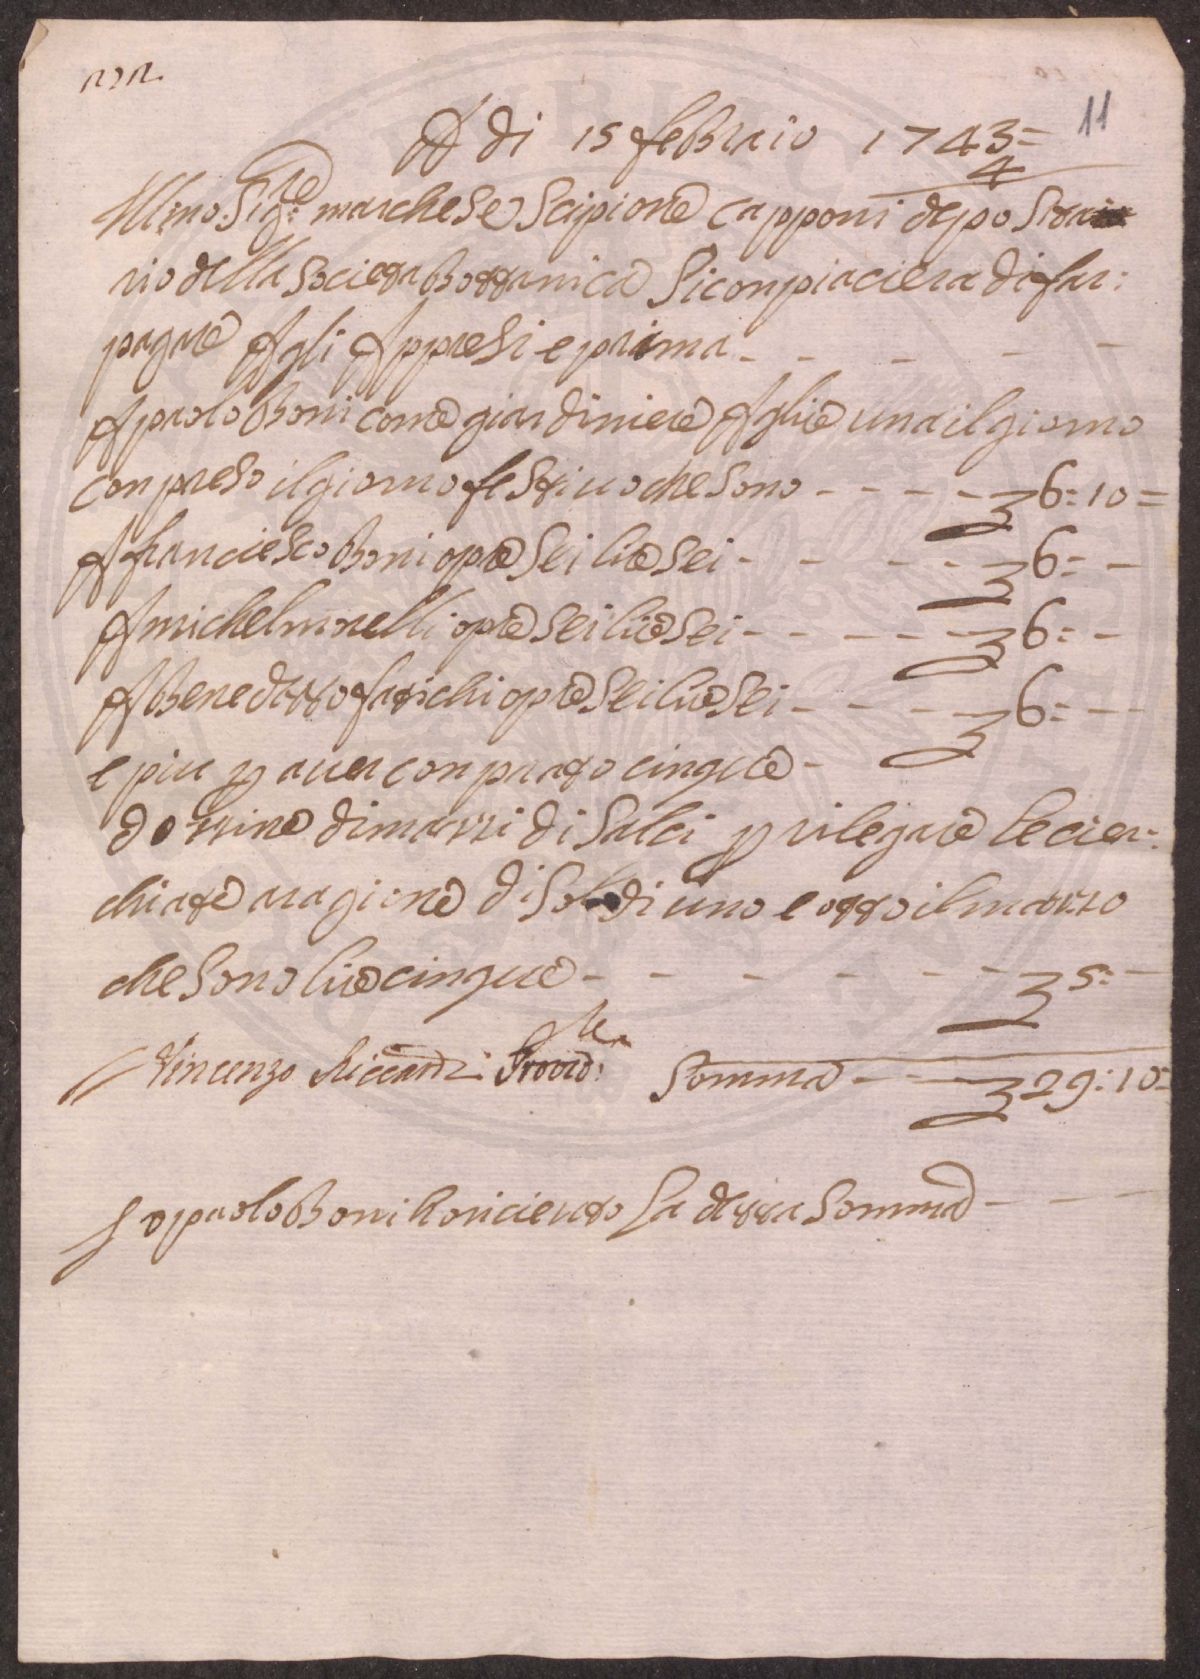 11
A di 15 febbraio 1743=
4
Illmo: Sigre: marchese Scipione capponi deposita
rio della Societa Bottanica Si conpiaciera di far:
pagare Agli Appresi e prima
A paolo Boni come giardiniere A glire una il giorno
conpreso il giorno festiuo che sono 6:10=
A franciesco Boni opre sei lire sei 6:
A michel nunelli opre sei lire sei 6:
A Benedetto fatichi opre sei lire sei 6:
e piu p auer conprato cinque
dozzine di mazzi di salci p rilegare le cier:
chiate a ragione di soldi uno e otto il mazzo
che sono lire cinque 5:
Vincenzo Riccardi Provvre: Somma 29:10=
Io paolo Boni ho riceuto la detta Somma